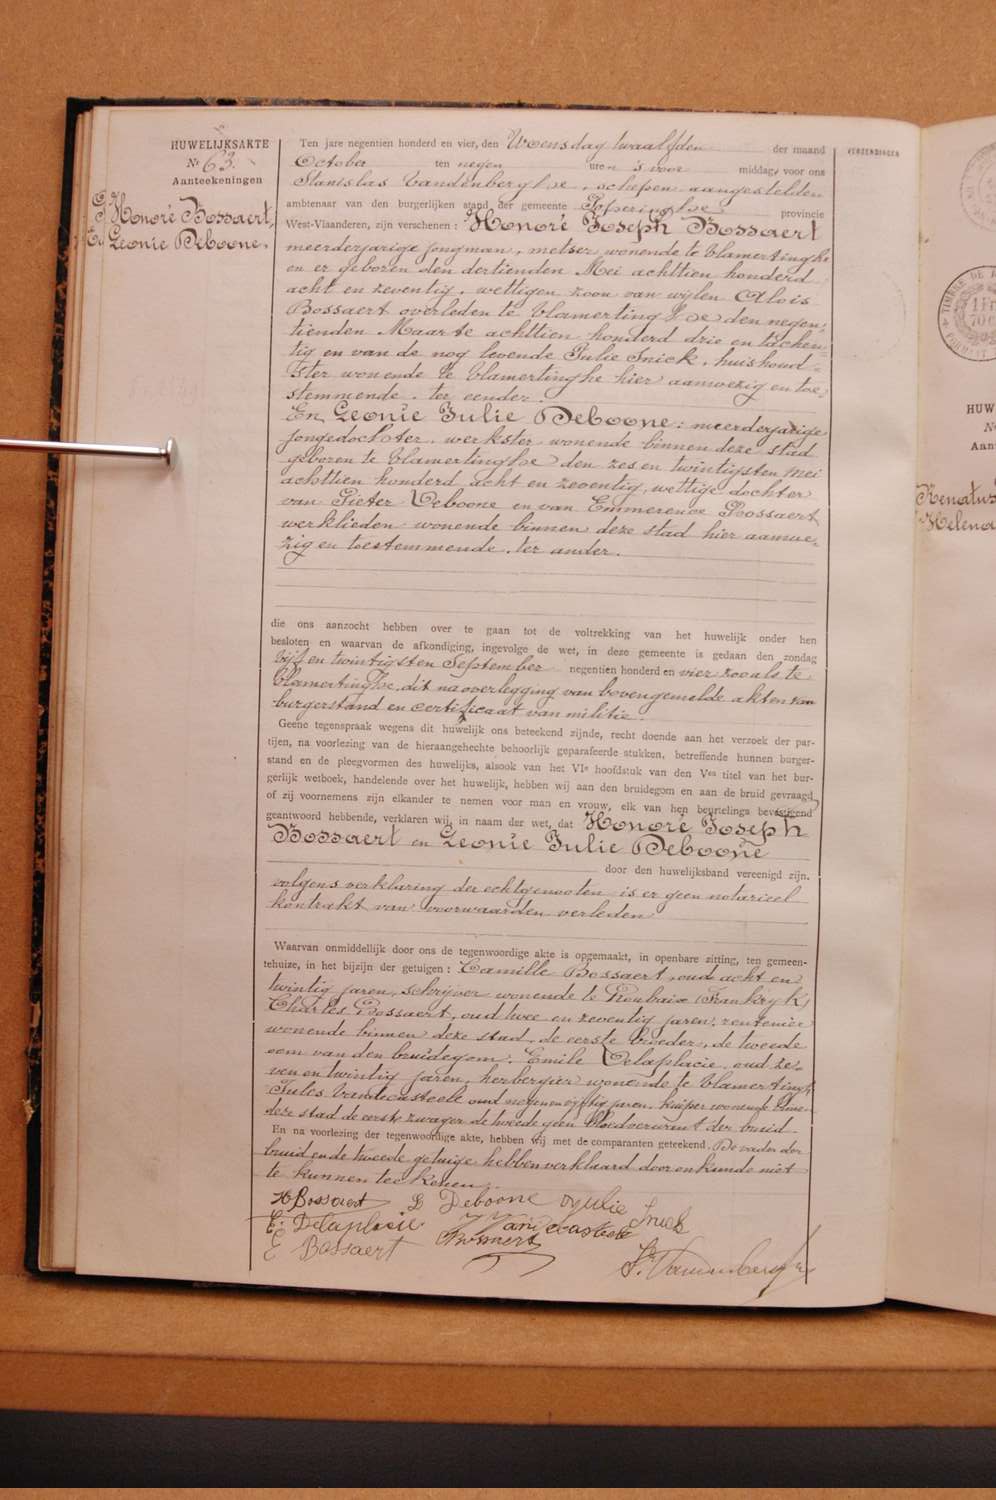 HUWELIJKSAKTE
Nr 63.
Aanteekeningen
Honoré Bossaert,
En Leonie Deboone.
Ten jare negentien honderd en vier, den Woensdag twaalfden der maand
October ten negen uren 's voor middags, voor ons
Stanislas Vandenberghe, schepen aangestelden
ambtenaar van den burgerlijken stand der gemeente Poperinghe provincie
West-Vlaanderen, zijn verschenen : Honoré Joseph Bossaert
meerderjarige jongman, metser wonende te Vlamertinghe
en er geboren den dertienden Mei achttien honderd
acht en zeventig, wettigen zoon van wijlen Aloïs
Bossaert overleden te Vlamertinghe den negen-
tienden Maarte achttien honderd drie en tachen-
tig en van de nog levende Julie Snick, huishoud-
ster wonende te Vlamertinghe hier aanwezig en toe-
stemmende, ter eender.
En Leonie Julie Deboone : meerderjarige
jongedochter, werkster wonende binnen deze stad
geboren te Vlamertinghe den zes en twintigsten Mei
achttien honderd acht en zeventig, wettige dochter
van Pieter Deboone en van Emmerence Bossaert
werklieden wonende binnen deze stad hier aanwe-
zig en toestemmende, ter ander.
die ons aanzocht hebben over te gaan tot de voltrekking van het huwelijk onder hen
besloten en waarvan de afkondiging, ingevolge de wet, in deze gemeente is gedaan den zondag
vijf en twintigsten September negentien honderd en vier zooals te
Vlamertinghe, dit na overlegging van bovengemelde akten van
burgerstand en certificaat van militie.
Geene tegenspraak wegens dit huwelijk ons beteekend zijnde, recht doende aan het verzoek der par-
tijen, na voorlezing van de hieraangehechte behoorlijk geparafeerde stukken, betreffende hunnen burger-
stand en de pleegvormen des huwelijks, alsook van het VIe hoofdstuk van den Ven titel van het bur-
gerlijk wetboek, handelende over het huwelijk, hebben wij aan den bruidegom en aan de bruid gevraagd
of zij voornemens zijn elkander te nemen voor man en vrouw, elk van hen beurtelings bevestigend
geantwoord hebbende, verklaren wij, in naam der wet, dat Honoré Joseph
Bossaert en Leonie Julie Deboone
door den huwelijksband vereenigd zijn.
volgens verklaring der echtgenooten is er geen notarieel
kontrakt van voorwaarden verleden
Waarvan onmiddellijk door ons de tegenwoordige akte is opgemaakt, in openbare zitting, ten gemeen-
tehuize, in het bijzijn der getuigen : Camille Bossaert, oud acht en
twintig jaren, schrijver wonende te Roubaix (Frankrijk)
Charles Bossaert, oud twee en zeventig jaren, rentenier
wonende binnen deze stad, de eerste broeder, de tweede
oom van den bruidegom. Emile Delaplacie, oud ze-
ven en twintig jaren, herbergier wonende te Vlamertinghe
Jules Vandecasteele oud negen en vijftig jaren, kuiper wonende binnen
deze stad de eerste zwager de tweede geen bloedverwant der bruid
En na voorlezing der tegenwoordige akte, hebben wij met de comparanten geteekend. De vader der
bruid en de tweede getuige hebben verklaard door onkunde niet
te kunnen teekenen.
H Bossaert L Deboone Julie Snick
E. Delaplacie J Vandecasteele
C Bossaert St. Vandenberghe
VERZENDINGEN
TIMBRE DE
HUW
Nr
Aan
Renatus
Helena